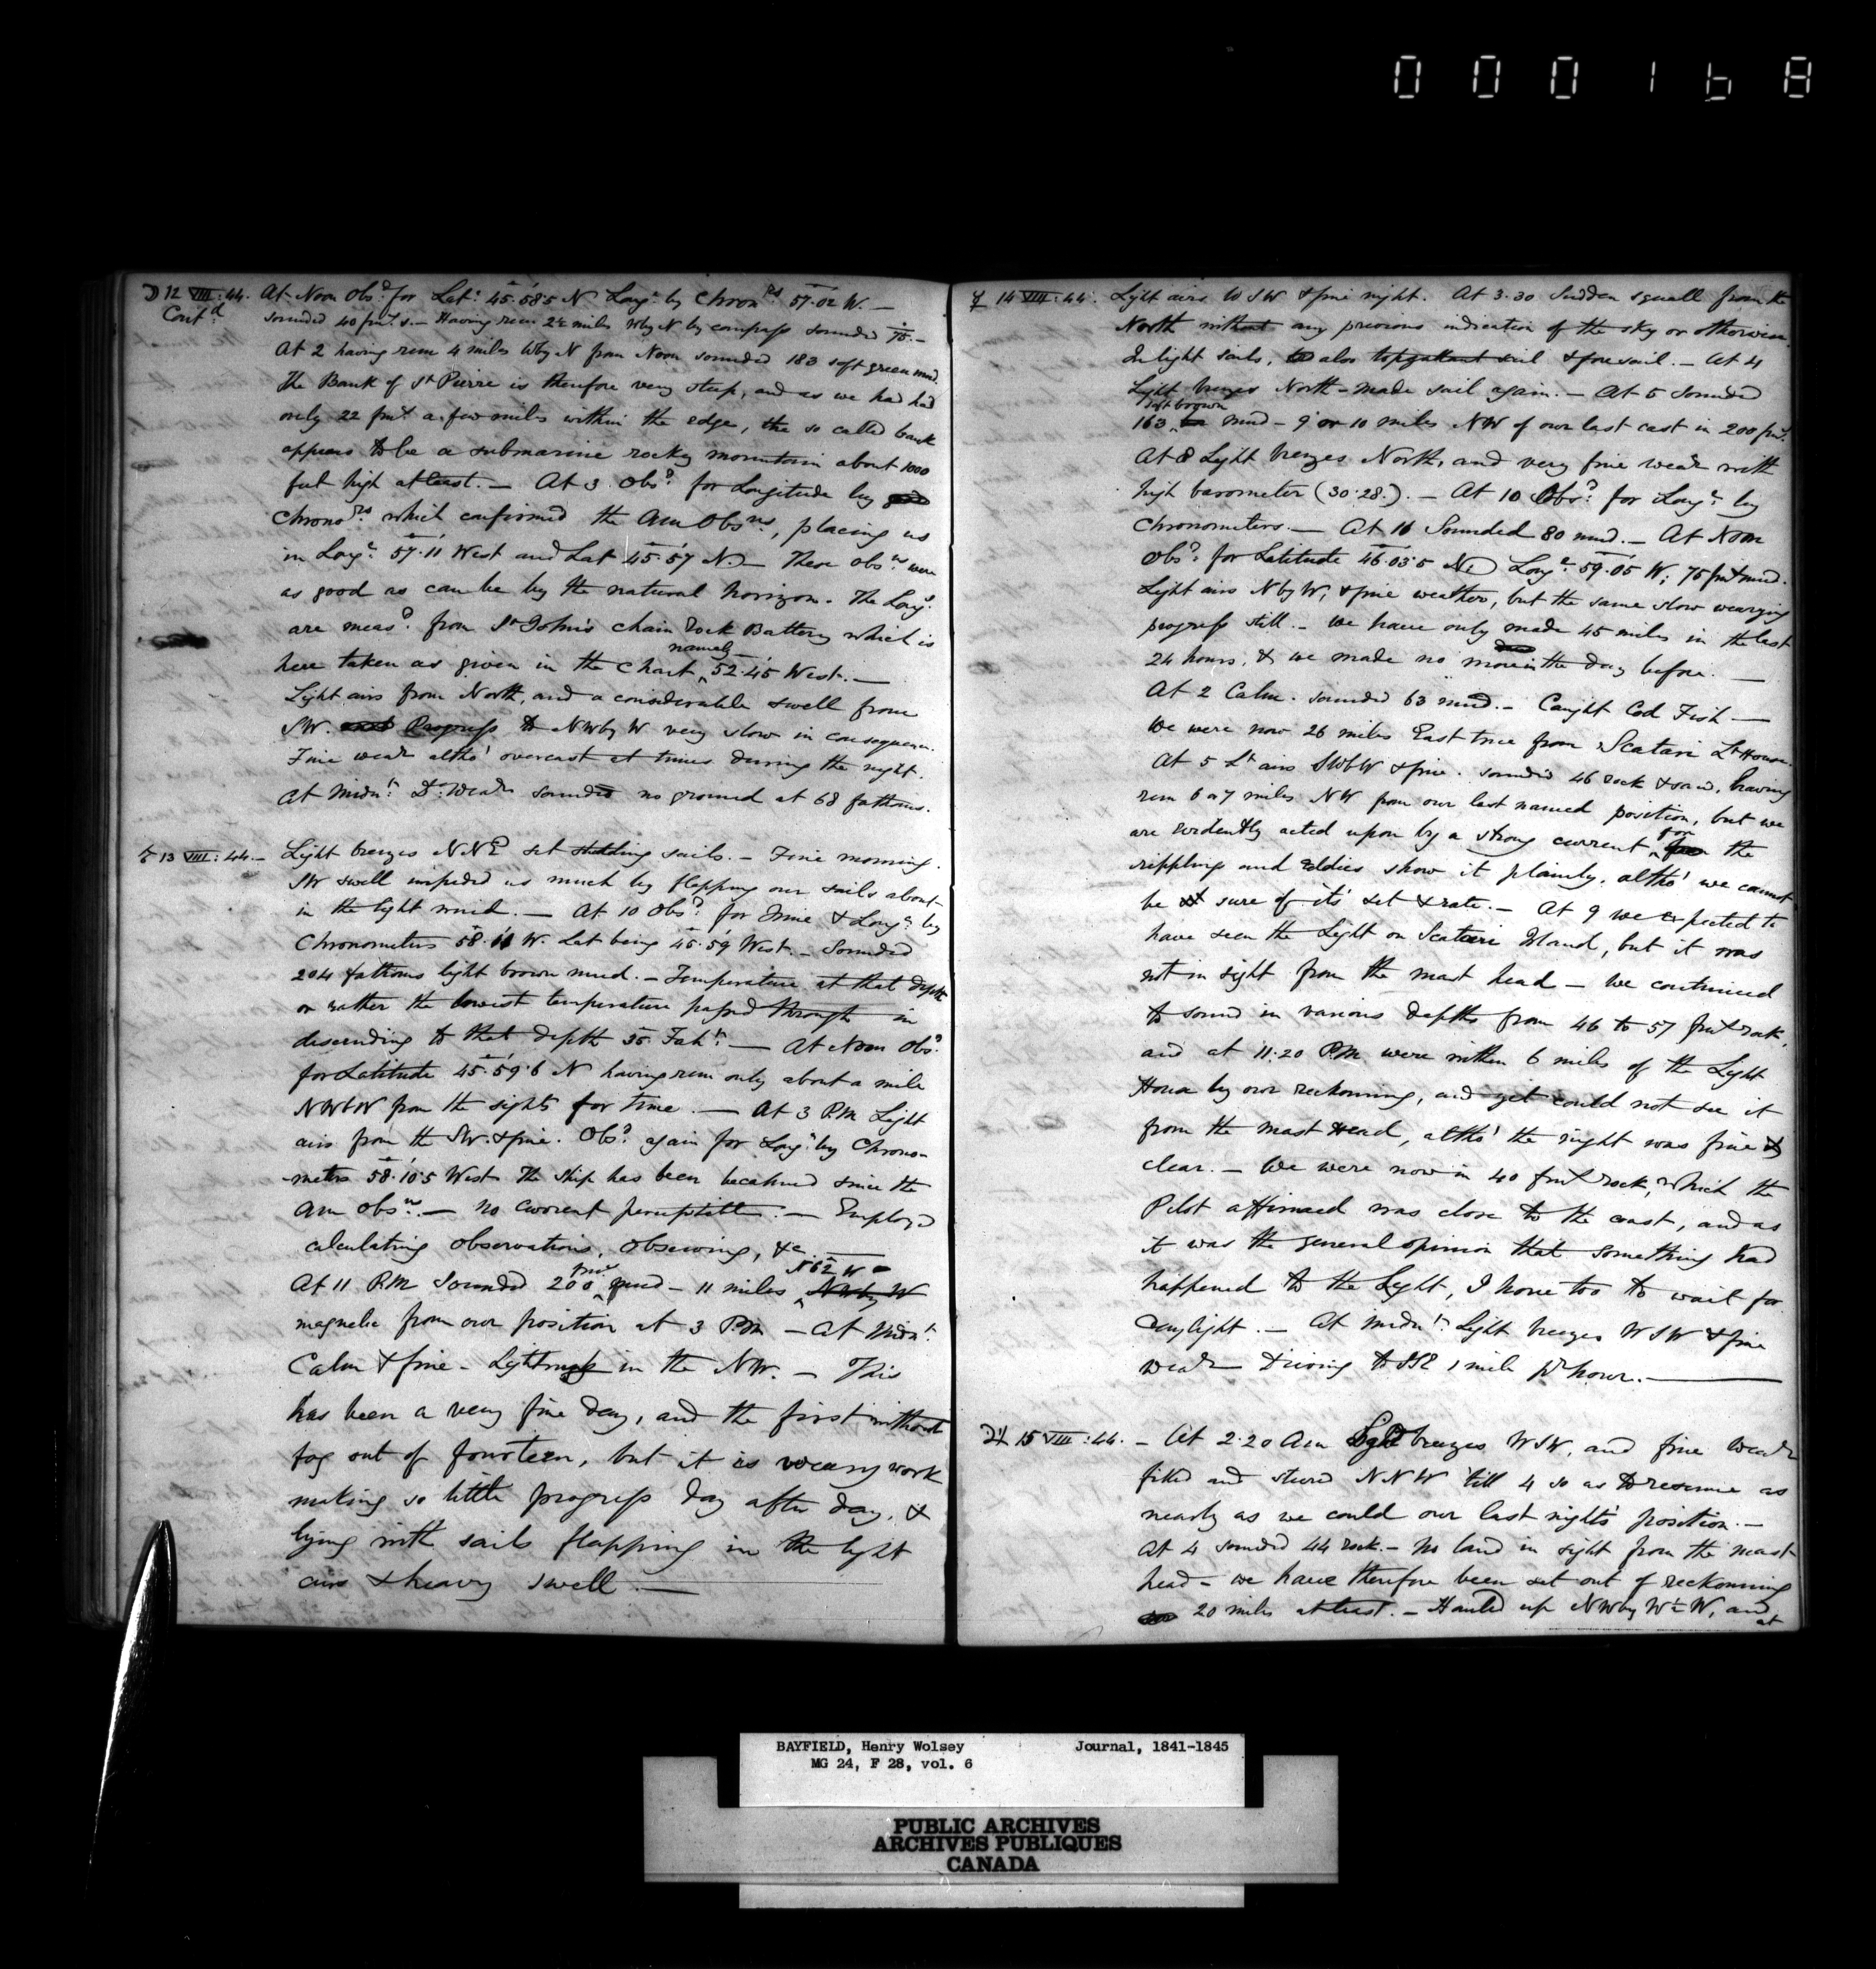 000168
☽ 12 VIII:44. At Noon Obsd for Lat: 45.58.5 N Longe by Chronrs 57.02 W. —
Contd sounded 40 fms s. — Having run 2½ miles WbyN by compass sounded 75. —
At 2 having run 4 miles WbyN from Noon sounded 183 soft green mud.
The Bank of St Pierre is therefore very steep, and as we had had
only 22 fms a few miles within the edge, the so called bank
appears to be a submarine rocky mountain about 1000
feet high at least. — At 3. Obsd for Longitude by
Chronors which confirmed the Am Obsns, placing us
in Longe 57.11 West and Lat 45.57 N. — These obsns were
as good as can be by the natural horizon. The Longs
are measd from St John's Chain Rock Battery which is
namely
here taken as given in the Chart 52.45 West. —
Light airs from North, and a considerable swell from
SW. and Progress to NWby W very slow in consequence.
Fine wear altho' overcast at times during the night.
At Midnt Do Wear sounded no ground at 68 fathoms.
♂ 13 VIII:44. — Light breezes NNE set studding sails. — Fine morning.
SW swell impeded us much by flapping our sails about
in the light wind. — At 10 Obsd for Time & Longe by
Chronometers 58.11 W. Lat being 45.59 West. — Sounded
204 fathoms light brown mud. — Temperature at that depth
or rather the lowest temperature passed through in
descending to that depth 35 Faht. — At Noon Obsd
for Latitude 45.59.6 N having run only about a mile
NWbW from the sights for time. — At 3 P.M Light
airs from the SW. & fine. Obsd again for Longe by Chrono-
meters 58.10.5 West. The Ship has been becalmed since the
Am obsns. — No current perceptible. — Employed
calculating observations, Observing, &c.
fms N62 W
At 11 P.M Sounded 200 mud — 11 miles NWby W
magnetic from our position at 3 P.M — At Midnt
Calm & fine — Lightning in the NW. — This
has been a very fine day, and the first without
fog out of fourteen, but it is weary work
making so little progress day after day, &
lying with sails flapping in the light
airs & heavy swell. —
☿ 14 VIII:44. Light airs WSW & fine night. At 3.30 Sudden squall from the
North without any previous indication of the sky or otherwise.
In light sails, also topgallant sail & foresail. — At 4
Light breezes North — made sail again. — At 5 Sounded
soft brown
163 mud — 9 or 10 miles NW of our last cast in 200 fms.
At 8 Light breezes North, and very fine wear with
high barometer (30.28.). — At 10 Obsd for Longe by
Chronometers. — At 10 Sounded 80 mud. — At Noon
Obsd for Latitude 46.03.5 N Longe 59.05 W; 75 fms mud.
Light airs NbyW, & fine weather, but the same slow wearying
progress still. — We have only made 45 miles in the last
24 hours, & we made no more in the day before. —
At 2 Calm. sounded 63 mud. — Caught Cod Fish —
We were now 26 miles East true from Scatari Lt House.
At 5 Lt airs SWbW & fine. sounded 46 rock & sand, having
run 6 or 7 miles NW from our last named position, but we
are evidently acted upon by a strong current for the
rippling and Eddies show it plainly, altho' we cannot
be sure of its' set & rate. — At 9 we expected to
have seen the Light on Scatari Island, but it was
not in sight from the mast head — we continued
to sound in various depths from 46 to 57 fms rock,
and at 11.20 P.M were within 6 miles of the Light
House by our reckonning, and yet could not see it
from the mast Head, altho' the night was fine &
clear. — We were now in 40 fms rock, which the
Pilot affirmed was close to the coast, and as
it was the general opinion that something had
happened to the Light, I hove too to wait for
Daylight. — At Midnt Light breezes WSW & fine
wear Driving to SSE 1 mile pr hour. —
♃ 15 VIII:44. — At 2.20 Am Light breezes WSW, and fine wear
filled and steered NNW 'till 4 so as to resume as
nearly as we could our last night's position. —
At 4 sounded 44 rock. — No land in sight from the mast-
head — we have therefore been set out of reckonning
20 miles at least. — Hauled up NWby W½W, and
at
BAYFIELD, Henry Wolsey Journal, 1841-1845
MG 24, F 28, vol. 6
PUBLIC ARCHIVES
ARCHIVES PUBLIQUES
CANADA